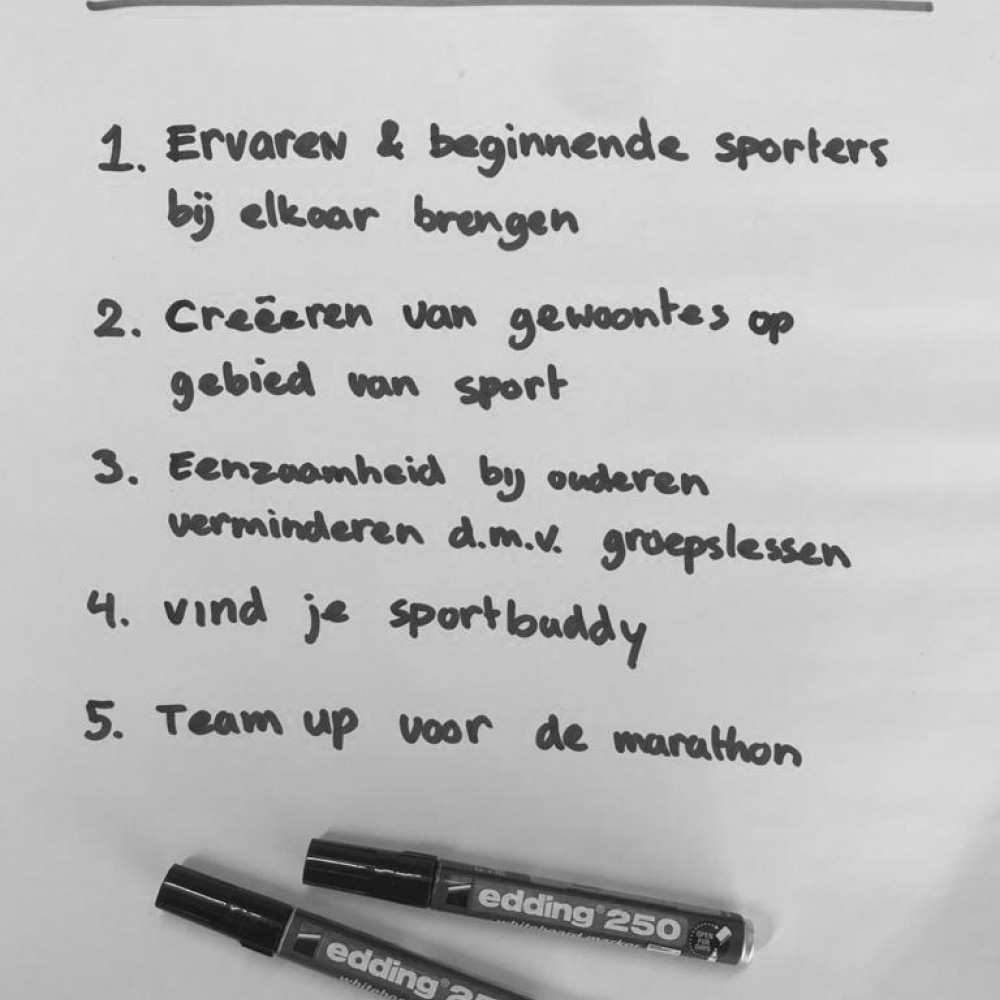 1. Ervaren & beginnende sporters
bij elkaar brengen
2. Creëeren van gewoontes op
gebied van sport
3. Eenzaamheid bij ouderen
verminderen d.m.v. groepslessen
4. vind je sportbuddy
5. Team up voor de marathon
edding 250
whiteboard marker
OPEN
FOR
DAYS
edding